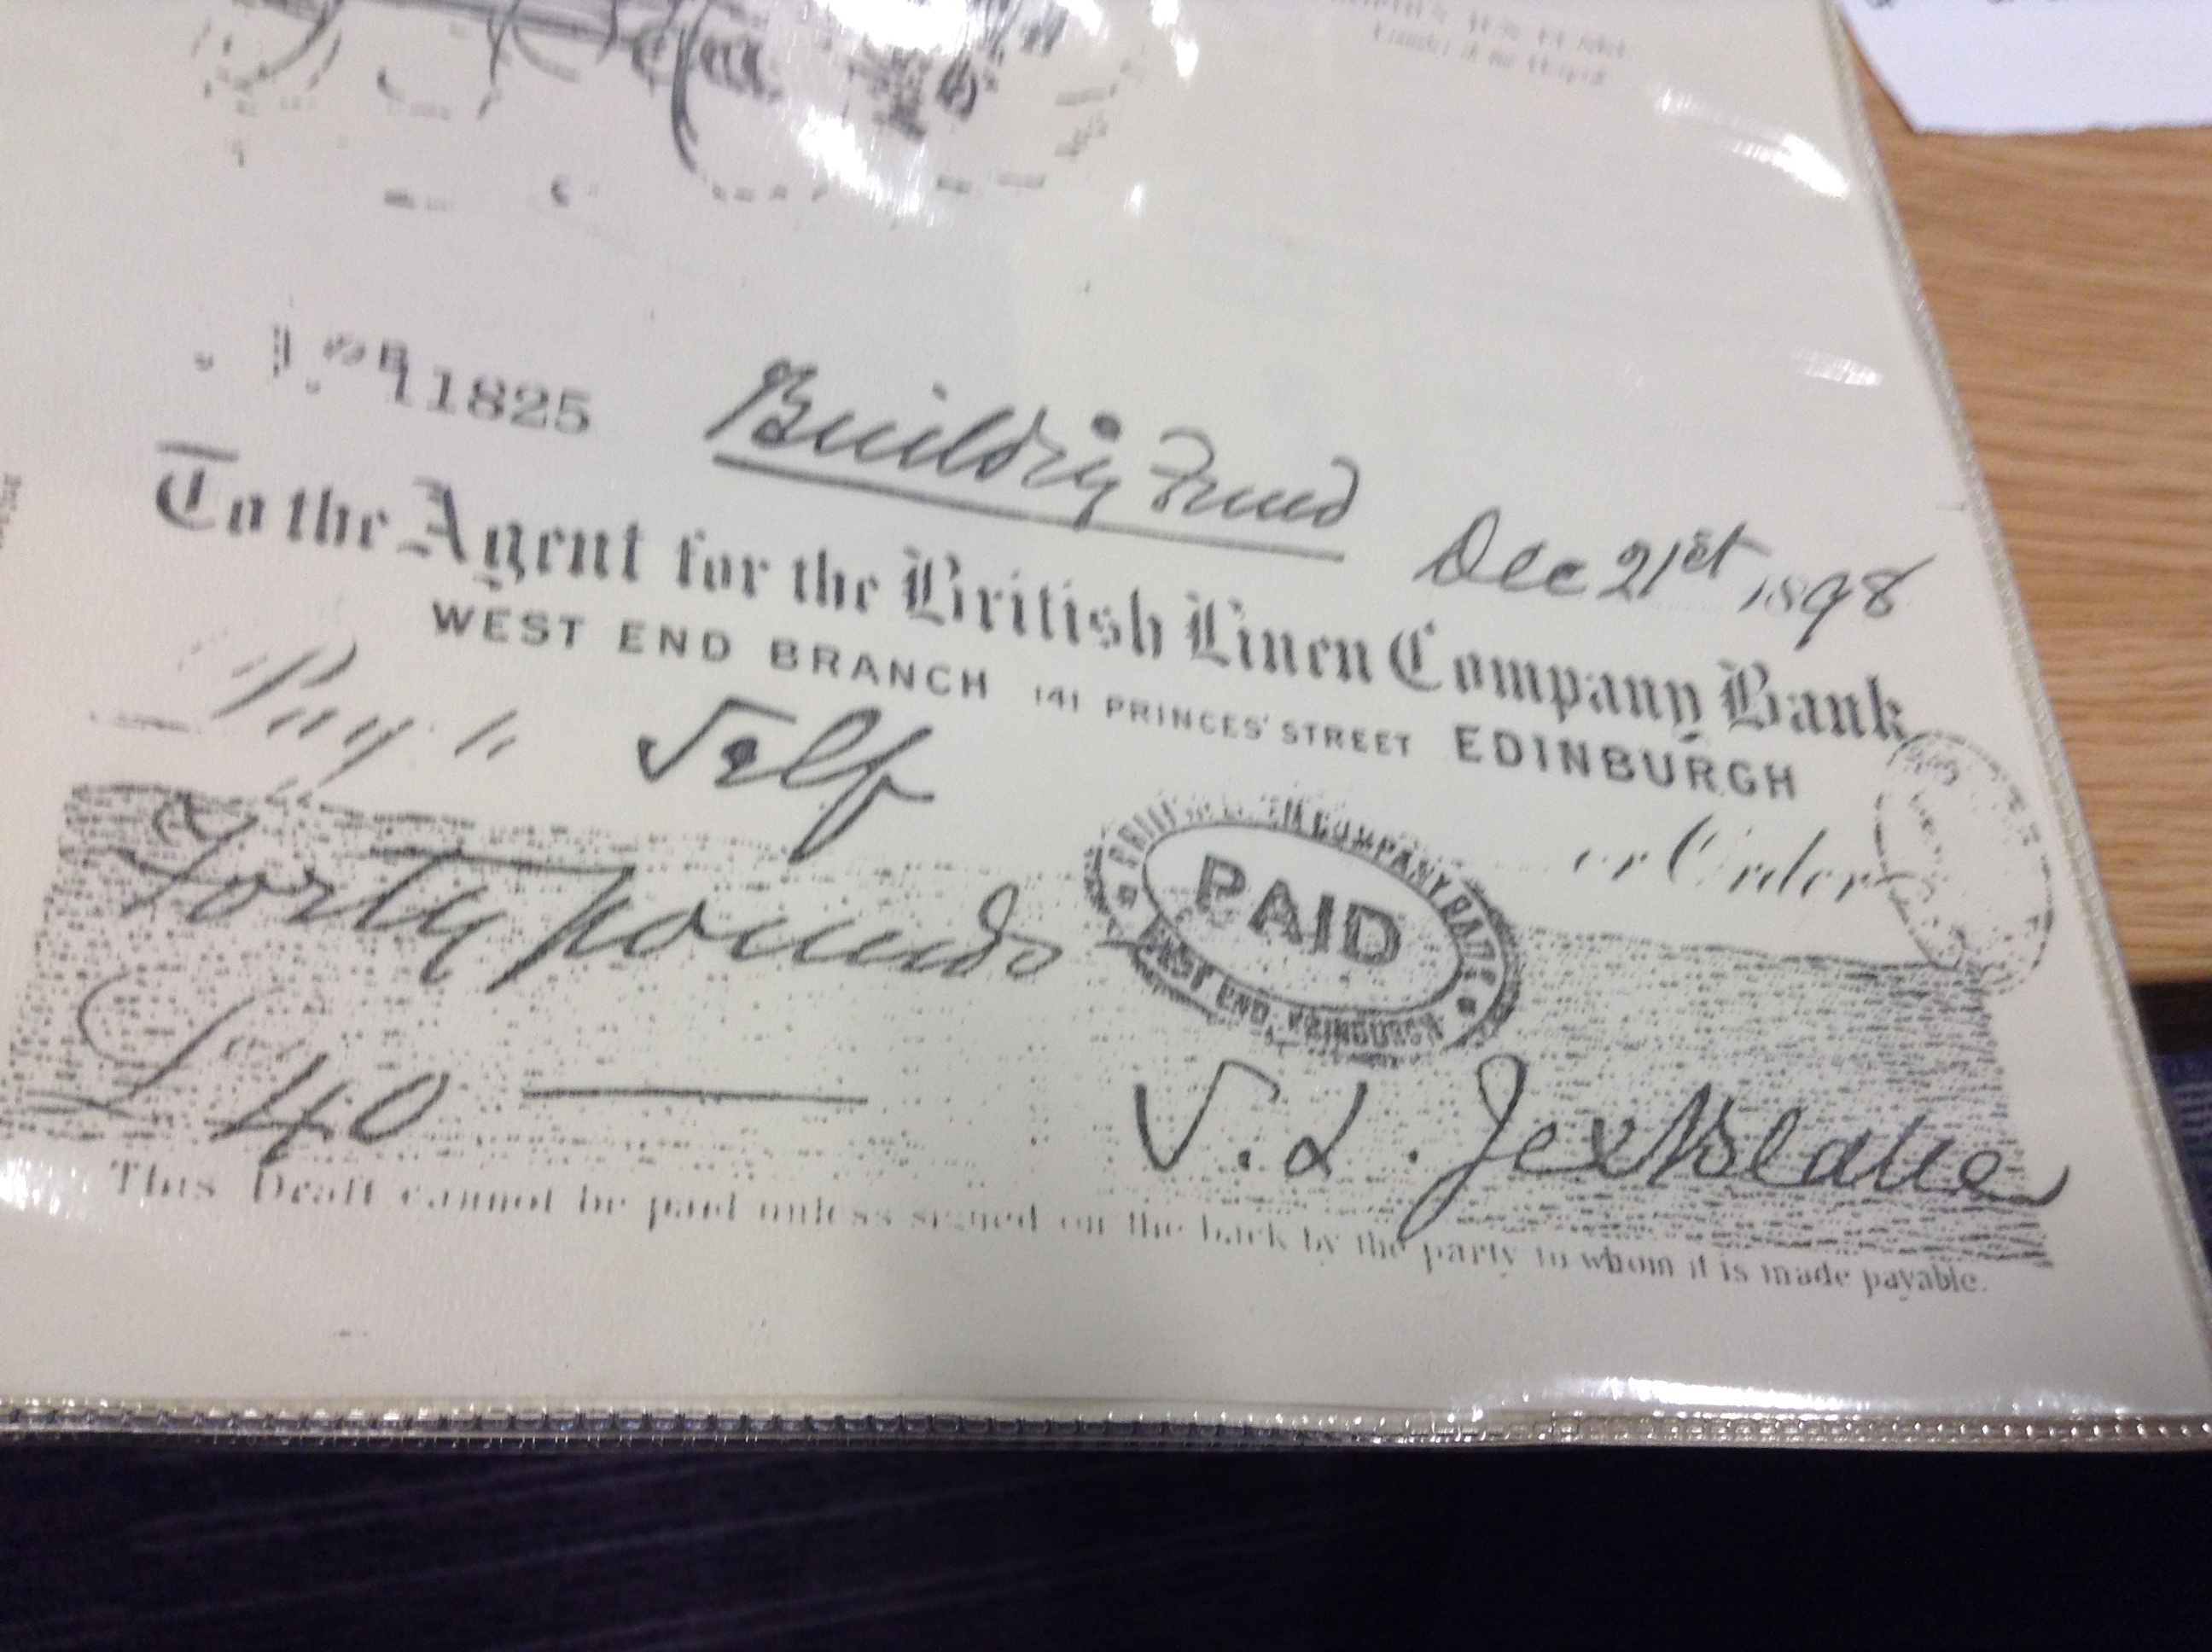 11825
Building Fund
Dec 21st 1898
To the Agent for the British Linen Company Bank
WEST END BRANCH 141 PRINCES' STREET EDINBURGH
Pay to Self
or Order
Forty pounds
COMPANY BANK
PAID
WEST END, EDINBURGH
£40
S. L. Jex Blake
This Draft cannot be paid unless signed on the back by the party to whom it is made payable.